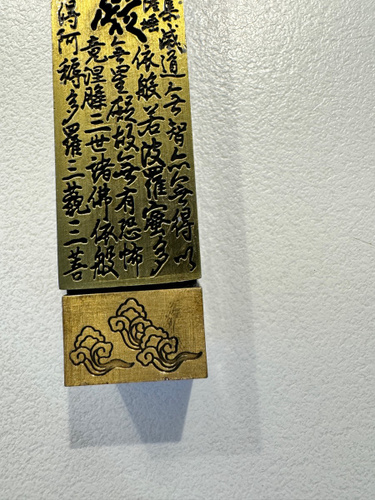 集滅道無智亦無得以
依般若波羅蜜多
無罣礙故無有恐怖
竟涅槃三世諸佛依般
得阿耨多羅三藐三菩